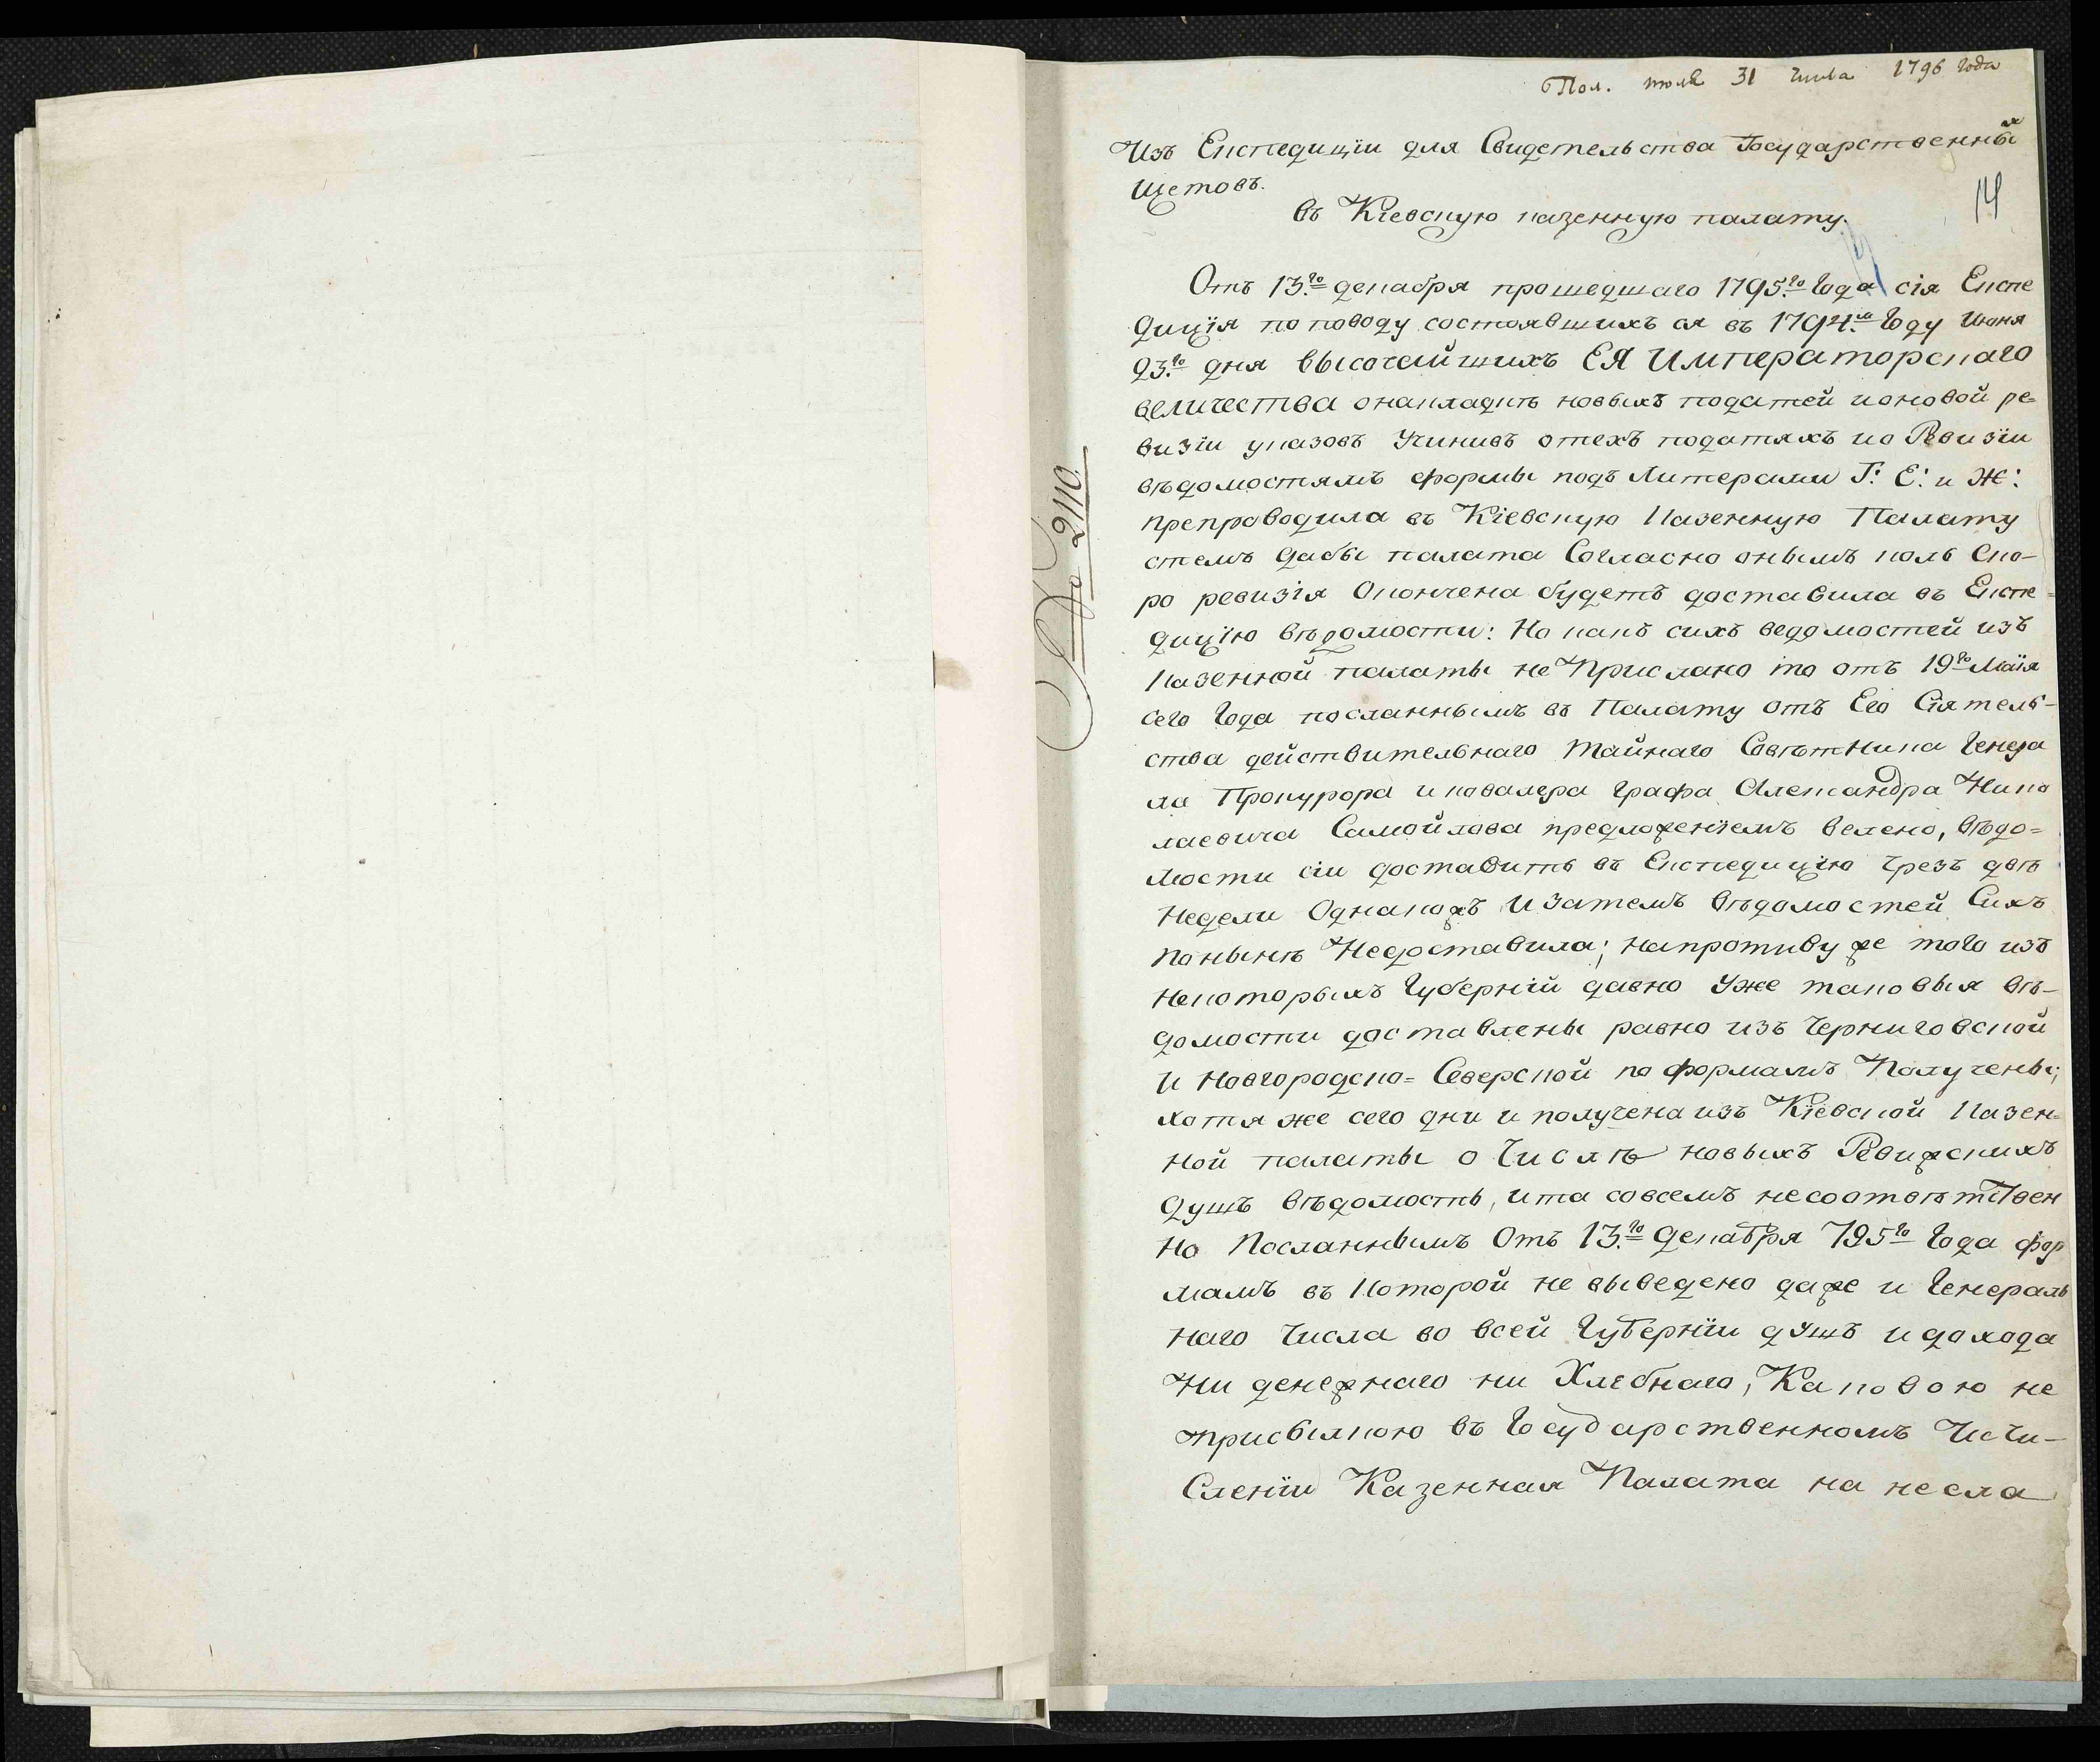 Пол. июля 31 числа 1796 года
Изъ Експедиціи для Свидетельства Государственныхъ
Щетовъ.
въ Кіевскую казенную палату.
14
№ 2110.
Отъ 13го декабря прошедшаго 1795го Года сія Експе
диція по поводу состоявшихъ ся въ 1794мъ Году Июня
23го дня высочайшихъ ЕЯ Императорскаго
величества о накладкѣ новыхъ податей и о новой ре=
визіи указовъ Учинивъ о техъ податяхъ и о Ревизіи
вѣдомостямъ формы подъ Литерами Г: Е: и Ж:
препроводила въ Кіевскую Казенную Палату
стемъ дабы палата Согласно онымъ коль Ско-
ро ревизія Окончена будетъ доставила въ Експе=
дицію вѣдомости: Но какъ сихъ ведомостей изъ
Казенной палаты не Прислано то отъ 19го Маія
сего Года посланнымъ въ Палату отъ Его Сіятель-
ства действительнаго Тайнаго Совѣтника Генера
ла Прокурора и кавалера Графа Александра Нико
лаевича Самойлова предложеніемъ велено, вѣдо=
мости сіи доставить въ Експедицію Чрезъ двѣ
Недели Однакожъ И затемъ вѣдомостей Сихъ
по нынѣ Недоставила; напротиву же того изъ
Некоторыхъ Губерній давно Уже таковыя вѣ-
домости доставлены равно изъ Черниговской
И Новгородско=Северской по формамъ Получены;
хотя же сего дни и получена изъ Кіевской Казен=
ной палаты о Числѣ новыхъ Ревижскихъ
Душъ вѣдомость, и та совсемъ несоответствен
Но Посланнымъ Отъ 13го Декабря 795го Года фор
мамъ въ Которой не выведено даже и Генераль
наго Числа во всей Губерніи душъ и дохода
Ни денежнаго ни Хлебнаго, Каковою не
присылкою въ Государственномъ Исчи-
Сленіи Казенная Палата на несла